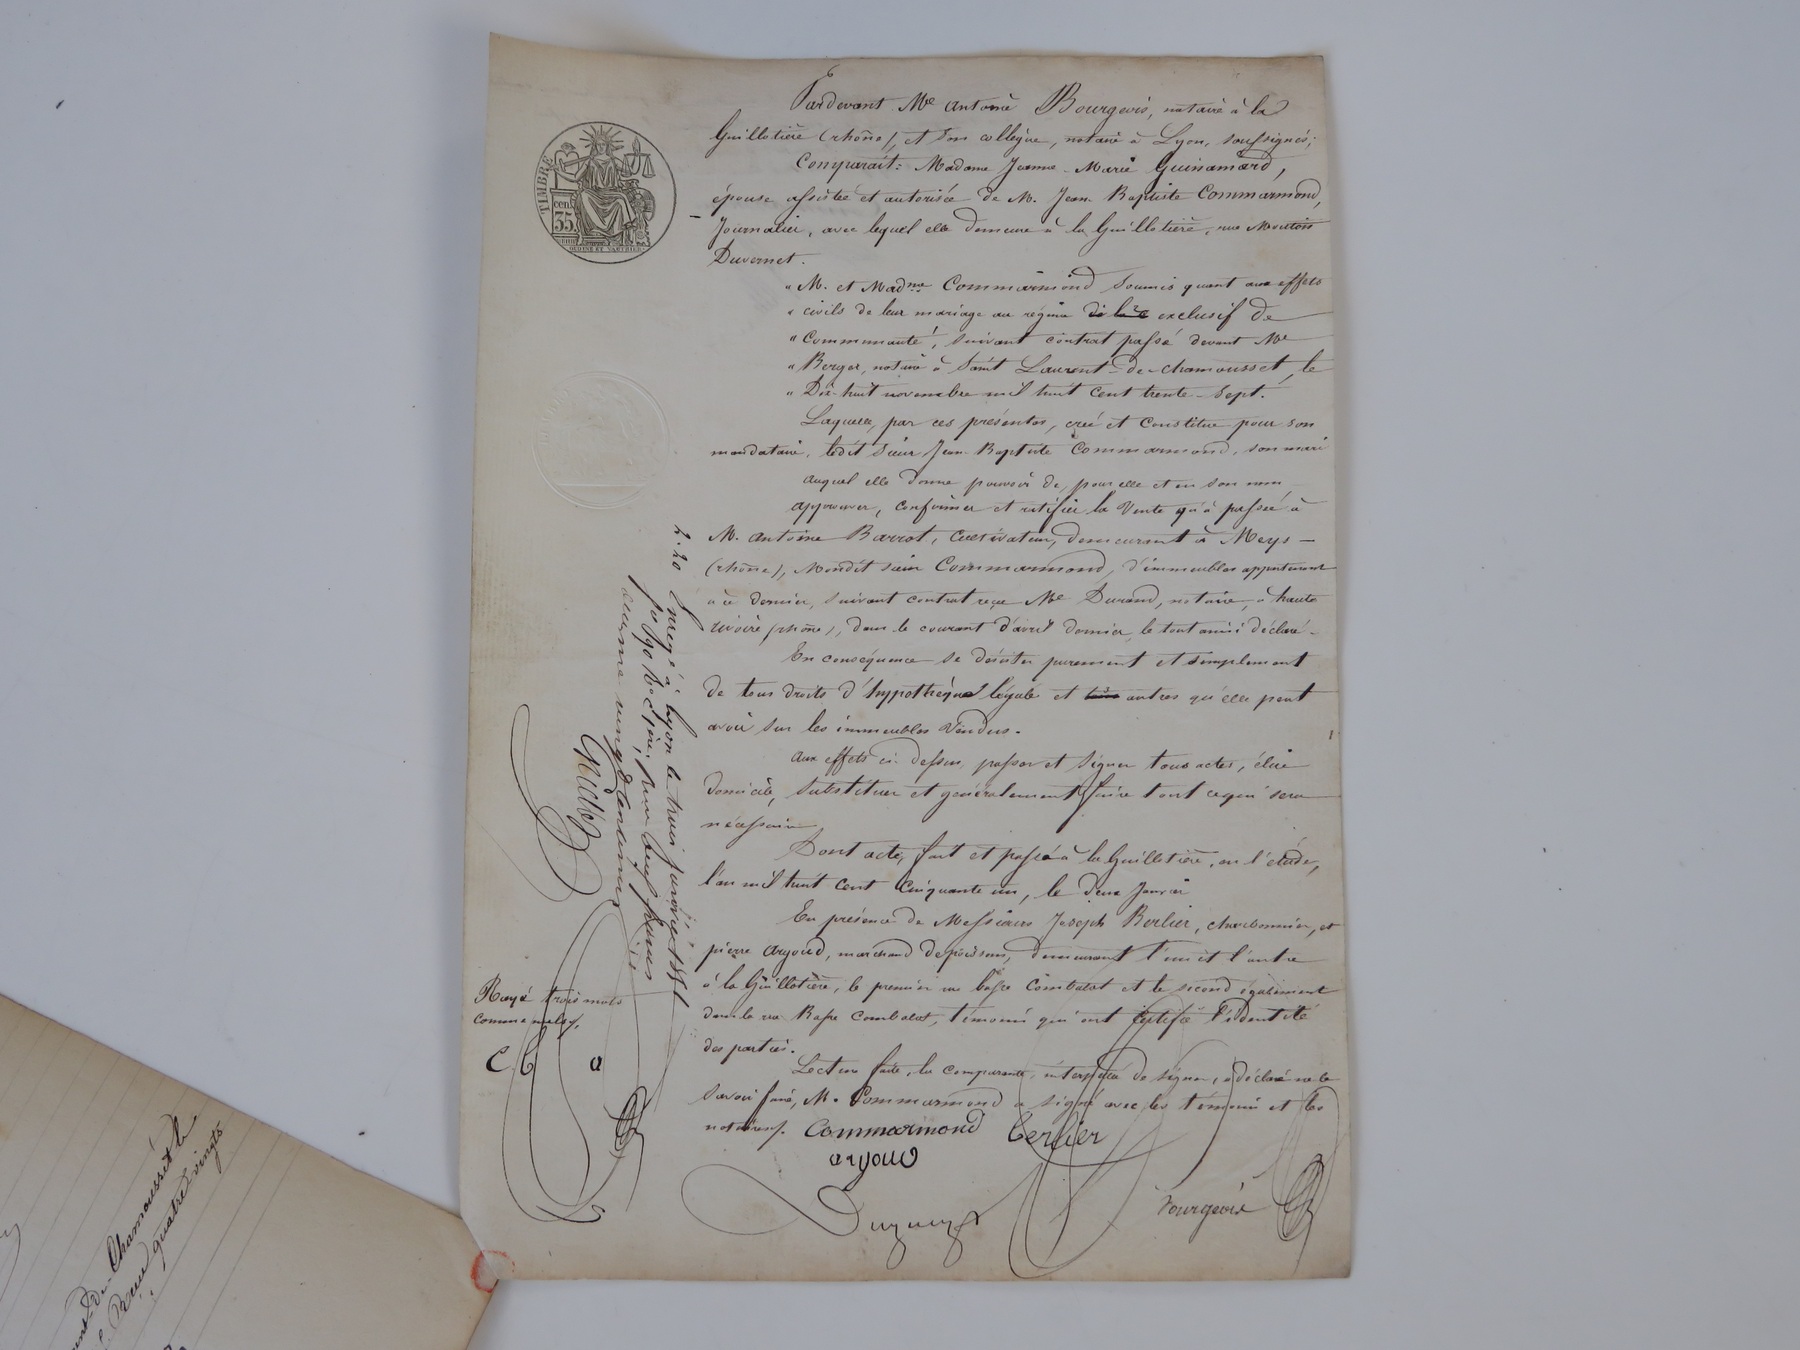 Pardevant Me Antoine Bourgeois, notaire à la
Guillotière (rhône), et son collègue, notaire à Lyon, soussignés;
Comparait: Madame Jeanne-Marie Guinamard,
épouse assistée et autorisée de M. Jean Baptiste Commarmond,
Journalier, avec lequel elle demeure à la Guillotière, rue Mouton
Duvernet.
" M. et Madme Commarmond soumis quant aux effets
" civils de leur mariage au régime exclusif de
" Communauté, suivant contrat passé devant Me
" Berger, notaire à Saint Laurent-de-chamousset, le
" Dix-huit novembre mil huit cent trente-sept.
Laquelle, par ces présentes, crée et constitue pour son
mandataire, ledit sieur Jean Baptiste Commarmond, son mari
auquel elle donne pouvoir de, pour elle et en son nom
approuver, confirmer et ratifier la Vente qu'a passée à
M. Antoine Barrot, cultivateur, demeurant à Meys-
(rhône), Mondit sieur Commarmond, d'immeubles appartenant
à ce dernier, suivant contrat reçu Me Durand, notaire, à haute
rivoire (rhône), dans le courant d'avril dernier, le tout ainsi déclaré-
En conséquence se désister purement et simplement
de tous droits d'hypothèque légale et autres qu'elle peut
avoir sur les immeubles Vendus.
Aux effets ci-dessus, passer et signer tous actes, élire
domicile, substituer et généralement faire tout ce qui sera
nécessaire
Dont acte, fait et passé à la Guillotière, en l'étude,
l'an mil huit cent cinquante un, le deux Janvier
En présence de Messieurs Joseph Berlier, charbonnier, et
pierre Argoud, marchand de poissons, demeurant l'un et l'autre
à la Guillotière, le premier rue Basse Combalot et le second également
dans la rue Basse Combalot, témoins qui ont certifié l'identité
des parties.
Lecture faite, la comparante, interpellée de signer, a déclaré ne le
savoir faire, M. Commarmond a signé avec les témoins et les
notaires.
Commarmond Berlier
argoud
Bourgeois
TIMBRE
35 cen.
2.20
Enregé à Lyon le trois janvier 1851
fo 190 Ro c 1ère, deux francs
décime vingt centimes
Rayé trois mots
comme nuls.
C B a
Chamousset le
quatre vingts